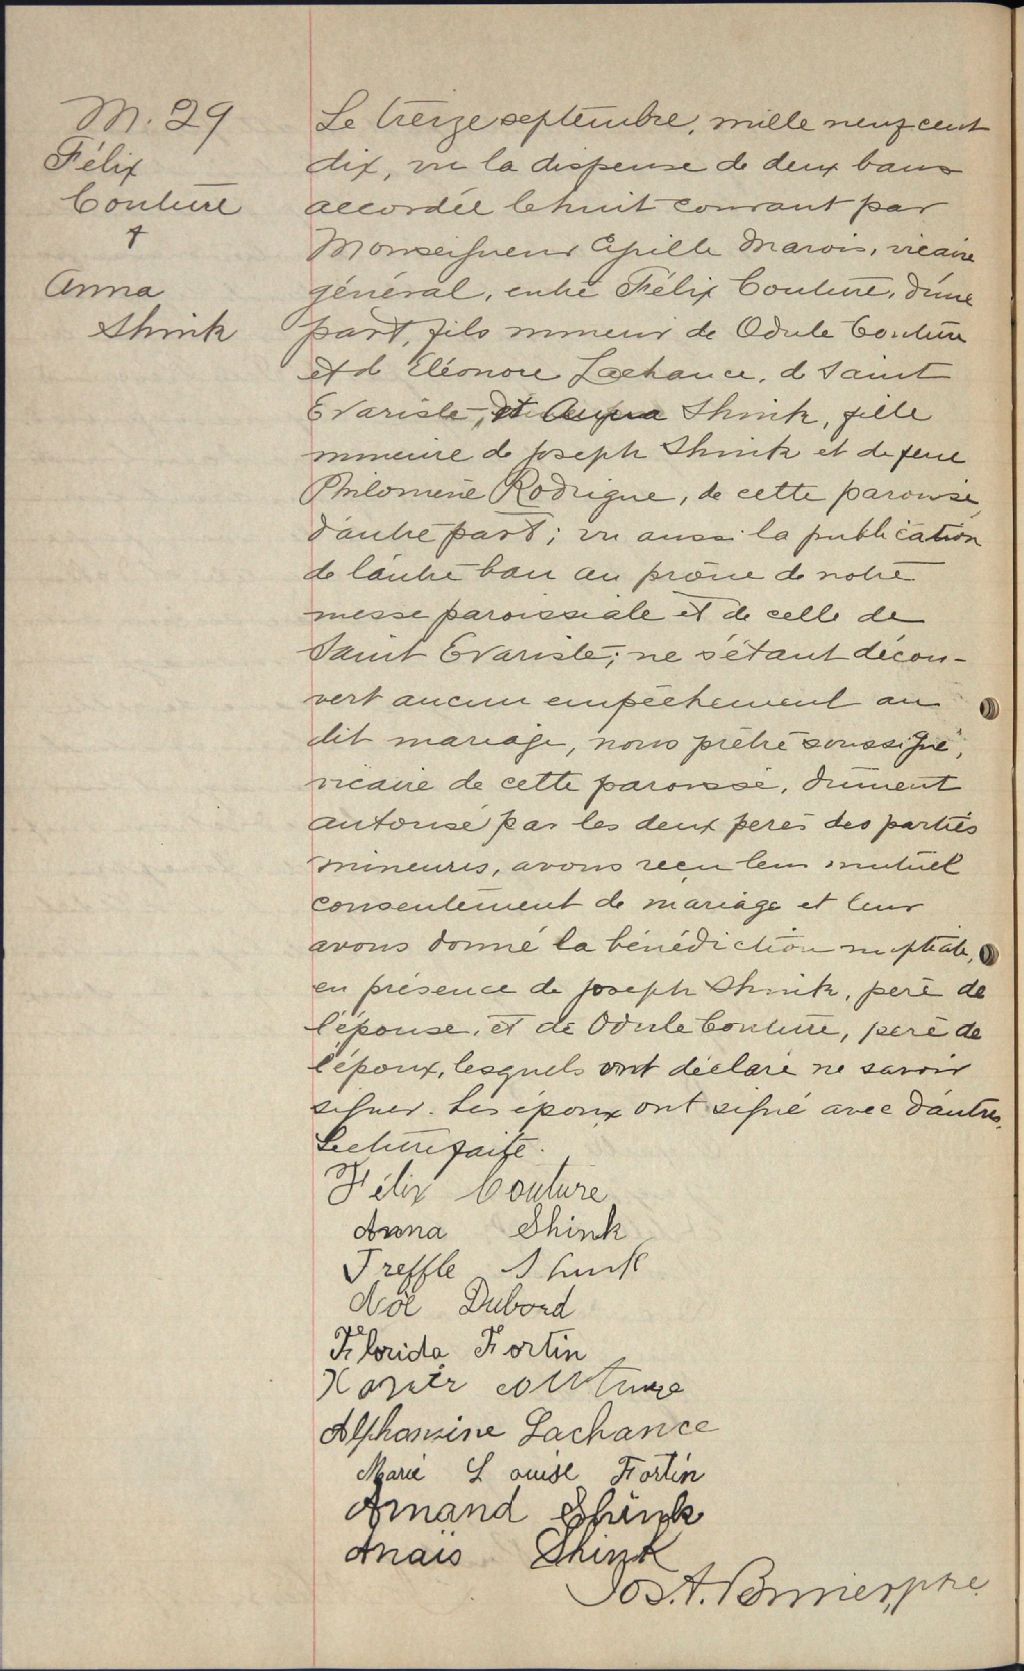 M. 29
Félix
Couture
+
Anna
Shink
Le treize septembre, mille neuf cent
dix, vu la dispense de deux bans
accordée le huit courant par
Monseigneur Cyrille Marois, vicaire
général, entre Félix Couture, d'une
part, fils mineur de Odule Couture
et d Eléonore Lachance, de Saint
Evariste, et Anna Shink, fille
mineure de Joseph Shink et de feue
Philomène Rodrigue, de cette paroisse,
d'autre part; vu aussi la publication
de l'autre ban au prône de notre
messe paroissiale et de celle de
Saint Evariste; ne s'étant décou-
vert aucun empêchement au
dit mariage, nous prêtre soussigné,
vicaire de cette paroisse, dûment
autorisé par les deux pères des parties
mineures, avons reçu leur mutuel
consentement de mariage et leur
avons donné la bénédiction nuptiale,
en présence de Joseph Shink, père de
l'épouse, et de Odule Couture, père de
l'époux, lesquels ont déclaré ne savoir
signer. Les époux ont signé avec d'autres.
Lecture faite.
Félix Couture
Anna Shink
Treffle Shink
Noë Dubord
Florida Fortin
Xavier couture
Alphonsine Lachance
Marie Louise Fortin
Amand Shink
Anaïs Shink
Jos. A. ptre